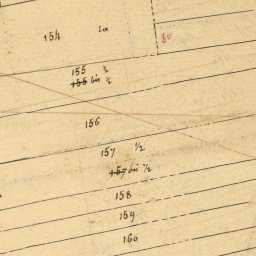 154
80
155 ½
155 bis ½
156
157 ½
157 bis ½
158
159
160